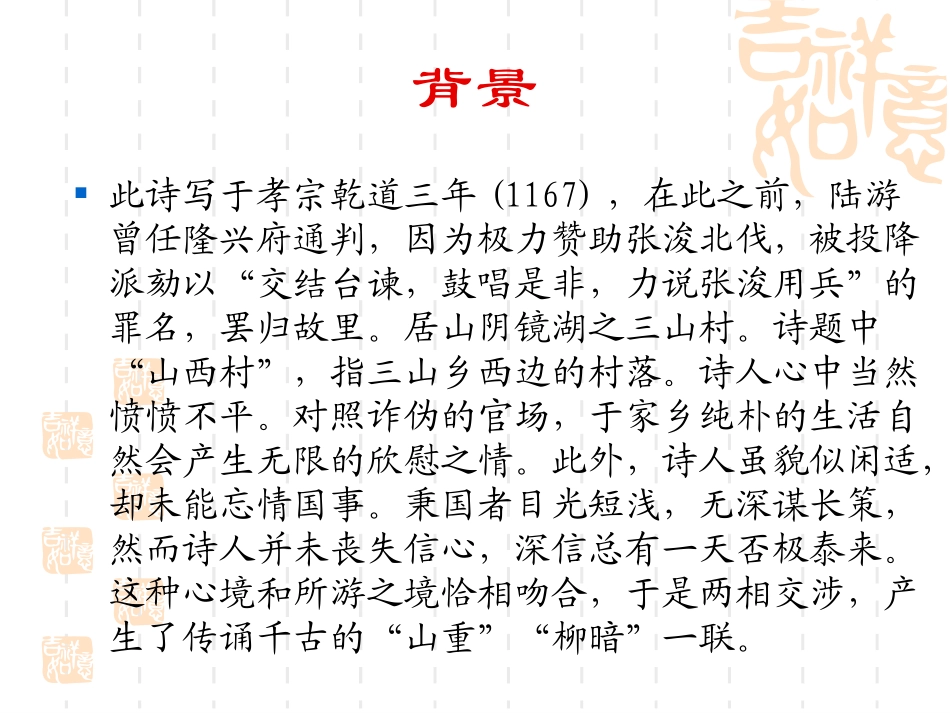 吉祥
如意
背景
此诗写于孝宗乾道三年 (1167) ，在此之前，陆游
曾任隆兴府通判，因为极力赞助张浚北伐，被投降
派劾以“交结台谏，鼓唱是非，力说张浚用兵”的
罪名，罢归故里。居山阴镜湖之三山村。诗题中
“山西村”，指三山乡西边的村落。诗人心中当然
愤愤不平。对照诈伪的官场，于家乡纯朴的生活自
然会产生无限的欣慰之情。此外，诗人虽貌似闲适，
却未能忘情国事。秉国者目光短浅，无深谋长策，
然而诗人并未丧失信心，深信总有一天否极泰来。
这种心境和所游之境恰相吻合，于是两相交涉，产
生了传诵千古的“山重”“柳暗”一联。